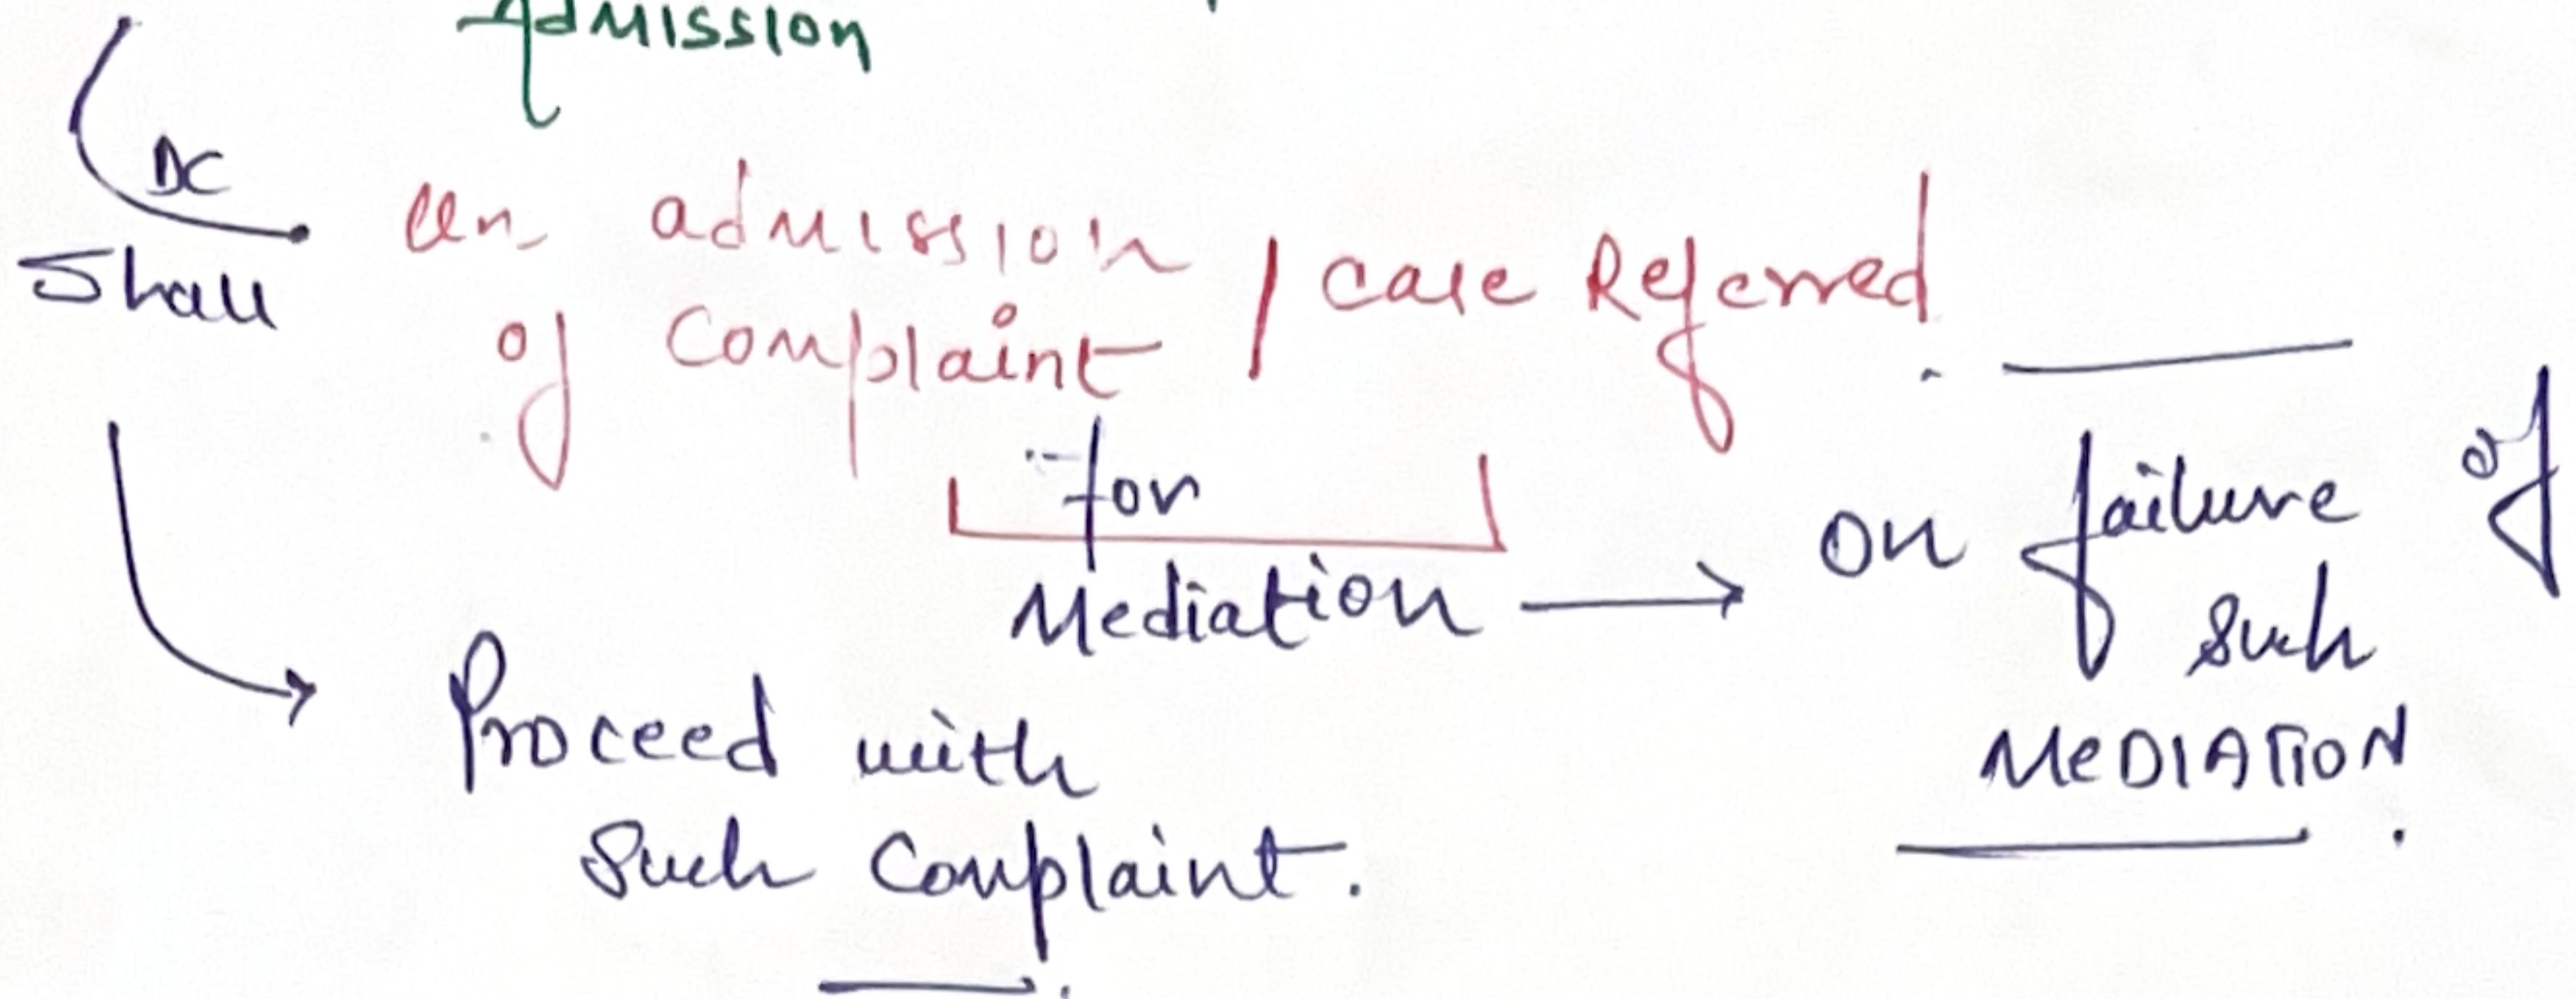 Admission
DC
Shall
on admission
of complaint / case Referred
for
Mediation → on failure of
such
MeDIATION.
Proceed with
such complaint.